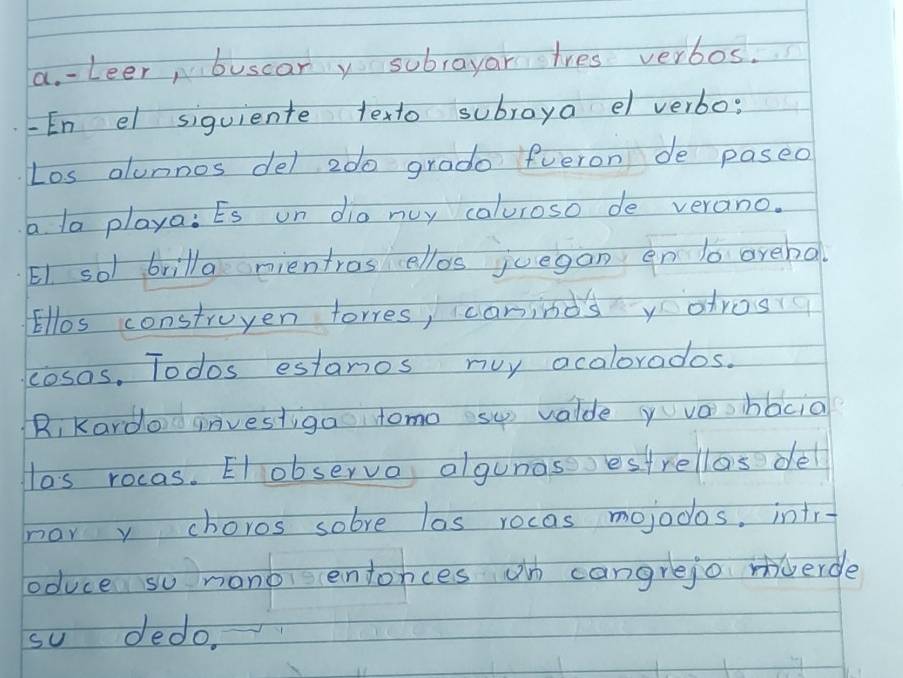 a.- Leer, buscar y subrayar tres verbos.
- En el siguiente texto subraya el verbo:
Los alumnos del 2do grado fueron de paseo
a la playa: Es un dia muy caluroso de verano.
El sol brilla mientras ellos juegan en la arena.
Ellos construyen torres, caminos y otras
cosas. Todos estamos muy acalorados.
Rikardo investiga toma su valde y va hacia
las rocas. El observa algunas estrellas del
mar y choros sobre las rocas mojadas. intr-
oduce su mano entonces un cangrejo muerde
su dedo.